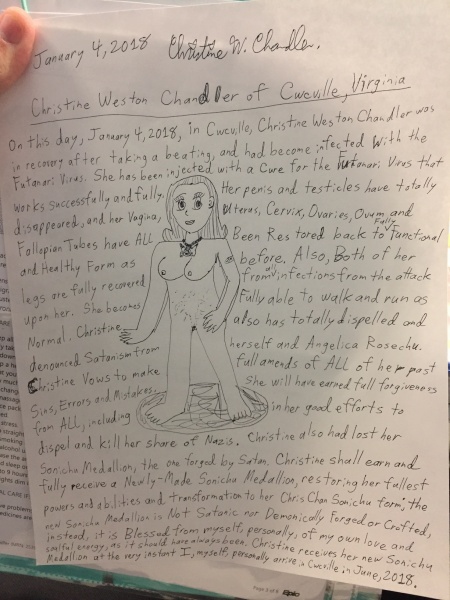 January 4, 2018 Christine W. Chandler.
Christine Weston Chandler of Cwcville, Virginia
On this day, January 4, 2018, in Cwcville, Christine Weston Chandler was
in recovery after taking a beating, and had become infected with the
Futanari Virus. She has been injected with a Cure for the Futanari Virus that
works successfully and fully. Her penis and testicles have totally
disappeared, and her Vagina, Uterus, Cervix, Ovaries, Ovum and
Follopian Tubes have ALL Been Restored back to Fully Functional
and Healthy Form as before. Also, Both of her
legs are fully recovered from all infections from the attack
upon her. She becomes Fully able to walk and run as
Normal. Christine also has totally dispelled and
denounced Satanism from herself and Angelica Rosechu.
Christine Vows to make full amends of ALL of her past
Sins, Errors and Mistakes. She will have earned full forgiveness
from ALL, including in her good efforts to
dispel and kill her share of Nazis. Christine also had lost her
Sonichu Medallion, the one forged by Satan. Christine shall earn and
fully receive a Newly-Made Sonichu Medallion, restoring her fullest
powers and abilities and transformation to her Chris Chan Sonichu form; the
new Sonichu Medallion is Not Satanic nor Demonically Forged or Crafted,
instead, it is Blessed from myself, personally, of my own love and
soulful energy, as it should have always been. Christine receives her new Sonichu
Medallion at the very instant I, myself, personally arrive in Cwcville in June, 2018.
Epic